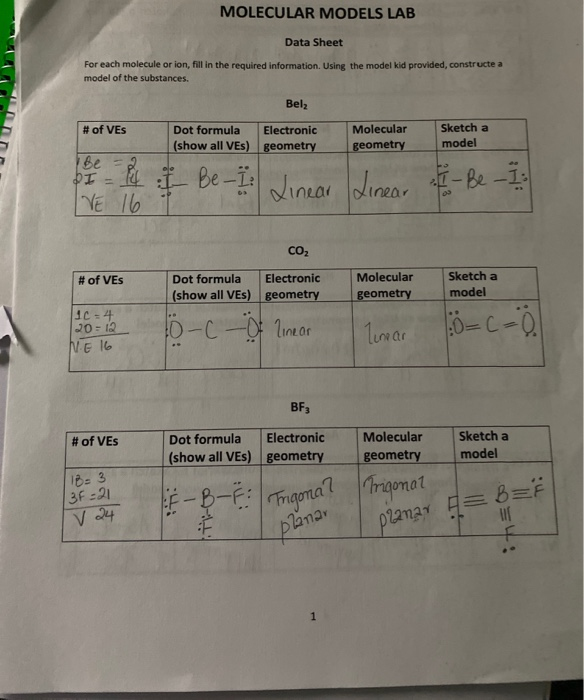 MOLECULAR MODELS LAB
Data Sheet
For each molecule or ion, fill in the required information. Using the model kid provided, constructe a
model of the substances.
BeI₂
# of VEs
Dot formula
(show all VEs)
Electronic
geometry
Molecular
geometry
Sketch a
model
1Be = 2
2I = 14
VE 16
I - Be - I
Linear
Linear
I - Be - I
CO₂
# of VEs
Dot formula
(show all VEs)
Electronic
geometry
Molecular
geometry
Sketch a
model
1C = 4
2O = 12
VE 16
O - C - O
linear
linear
O = C = O
BF₃
# of VEs
Dot formula
(show all VEs)
Electronic
geometry
Molecular
geometry
Sketch a
model
1B = 3
3F = 21
V 24
F - B - F
F
Trigonal
planar
Trigonal
planar
F ≡ B ≡ F
F
1